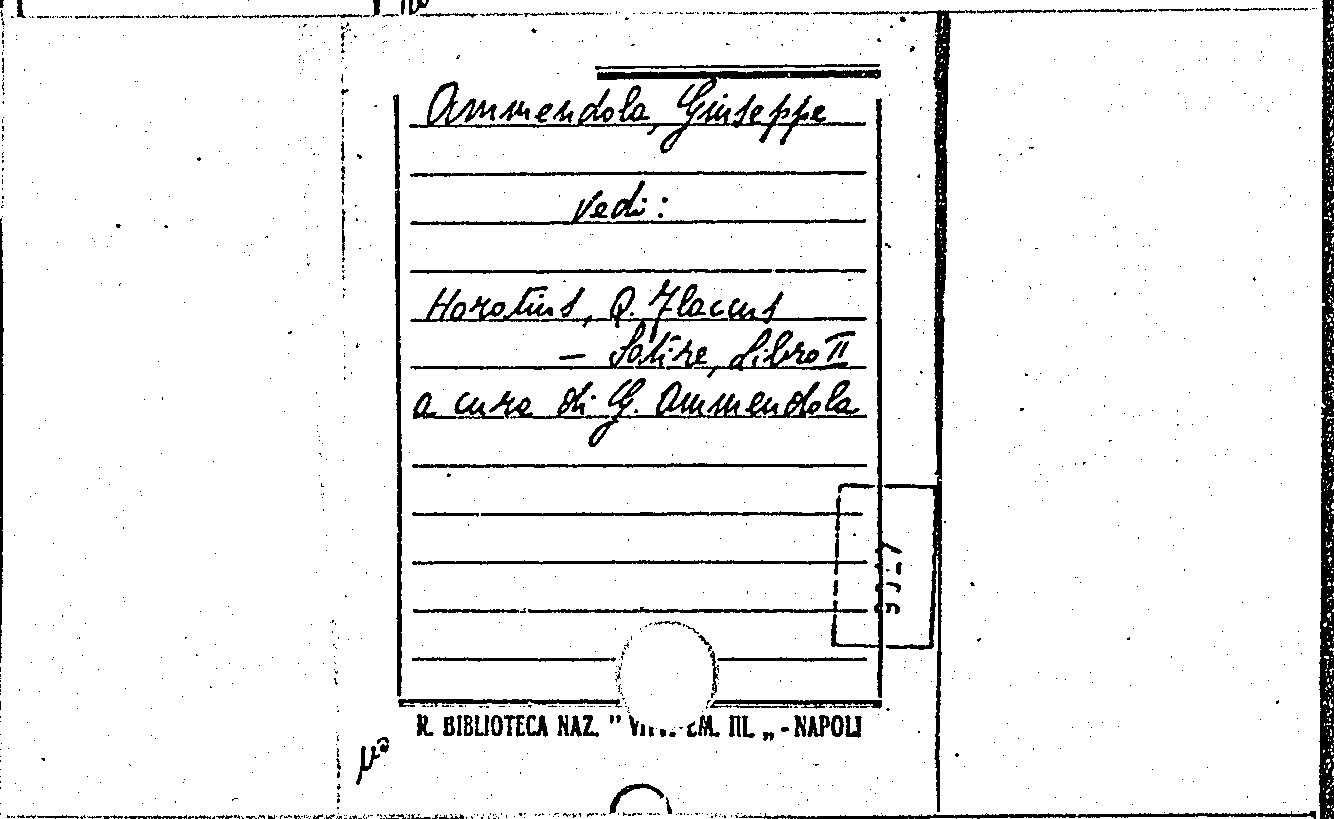 Ammendola, Giuseppe
Vedi:
Horatius, Q. Flaccus
— Satire, Libro II
a cura di G. Ammendola
R. BIBLIOTECA NAZ. " VITT. EM. III. „ - NAPOLI